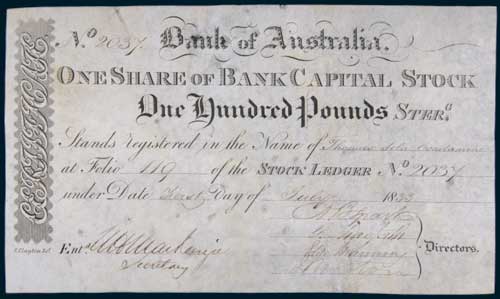 No. 2037 Bank of Australia.
ONE SHARE OF BANK CAPITAL STOCK
One Hundred Pounds STERG.
Stands registered in the Name of Thomas
at Folio 119 of the STOCK LEDGER No. 2037
under Date First Day of July 1833
Directors.
Entd. Mackenzie
Secretary
CERTIFICATE